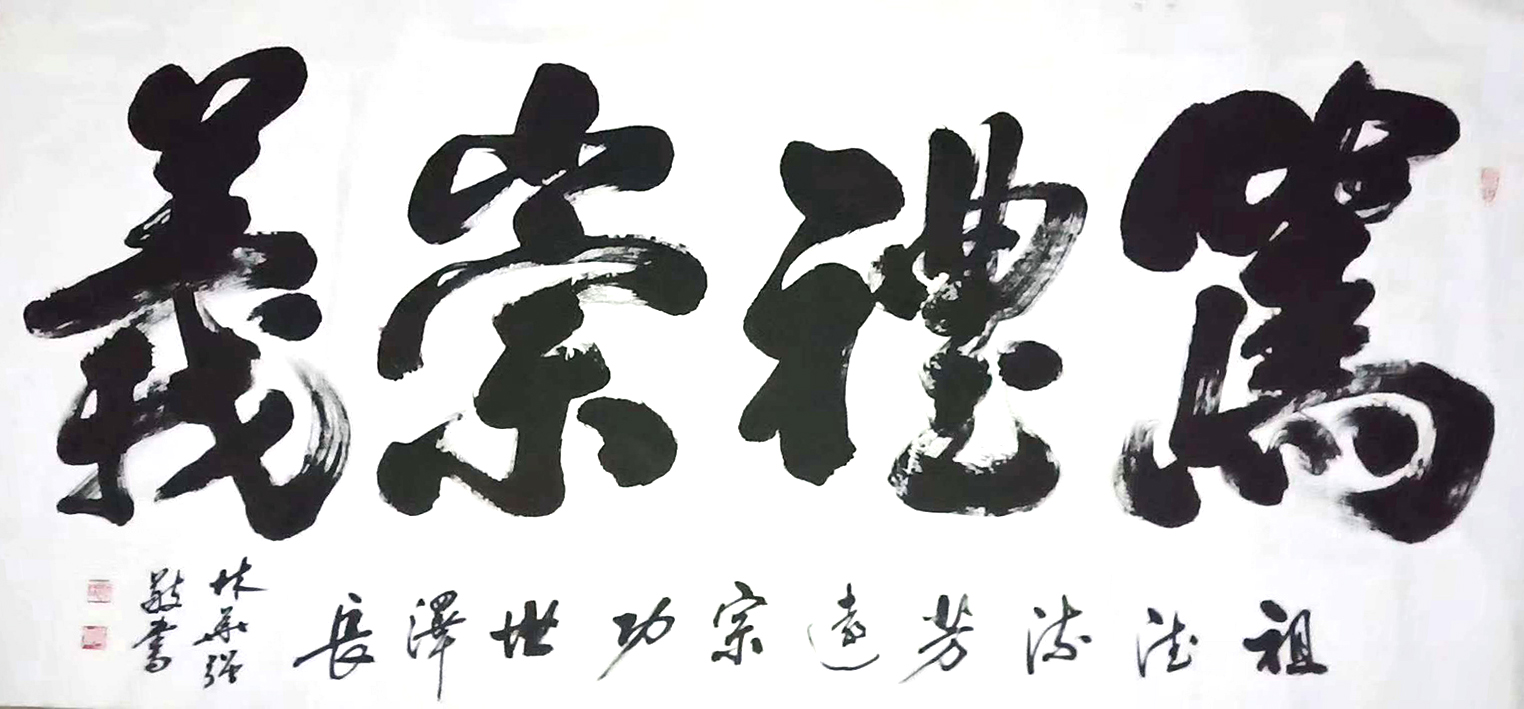 篤禮崇義
祖德流芳遠宗功世澤長
林華強
敬書